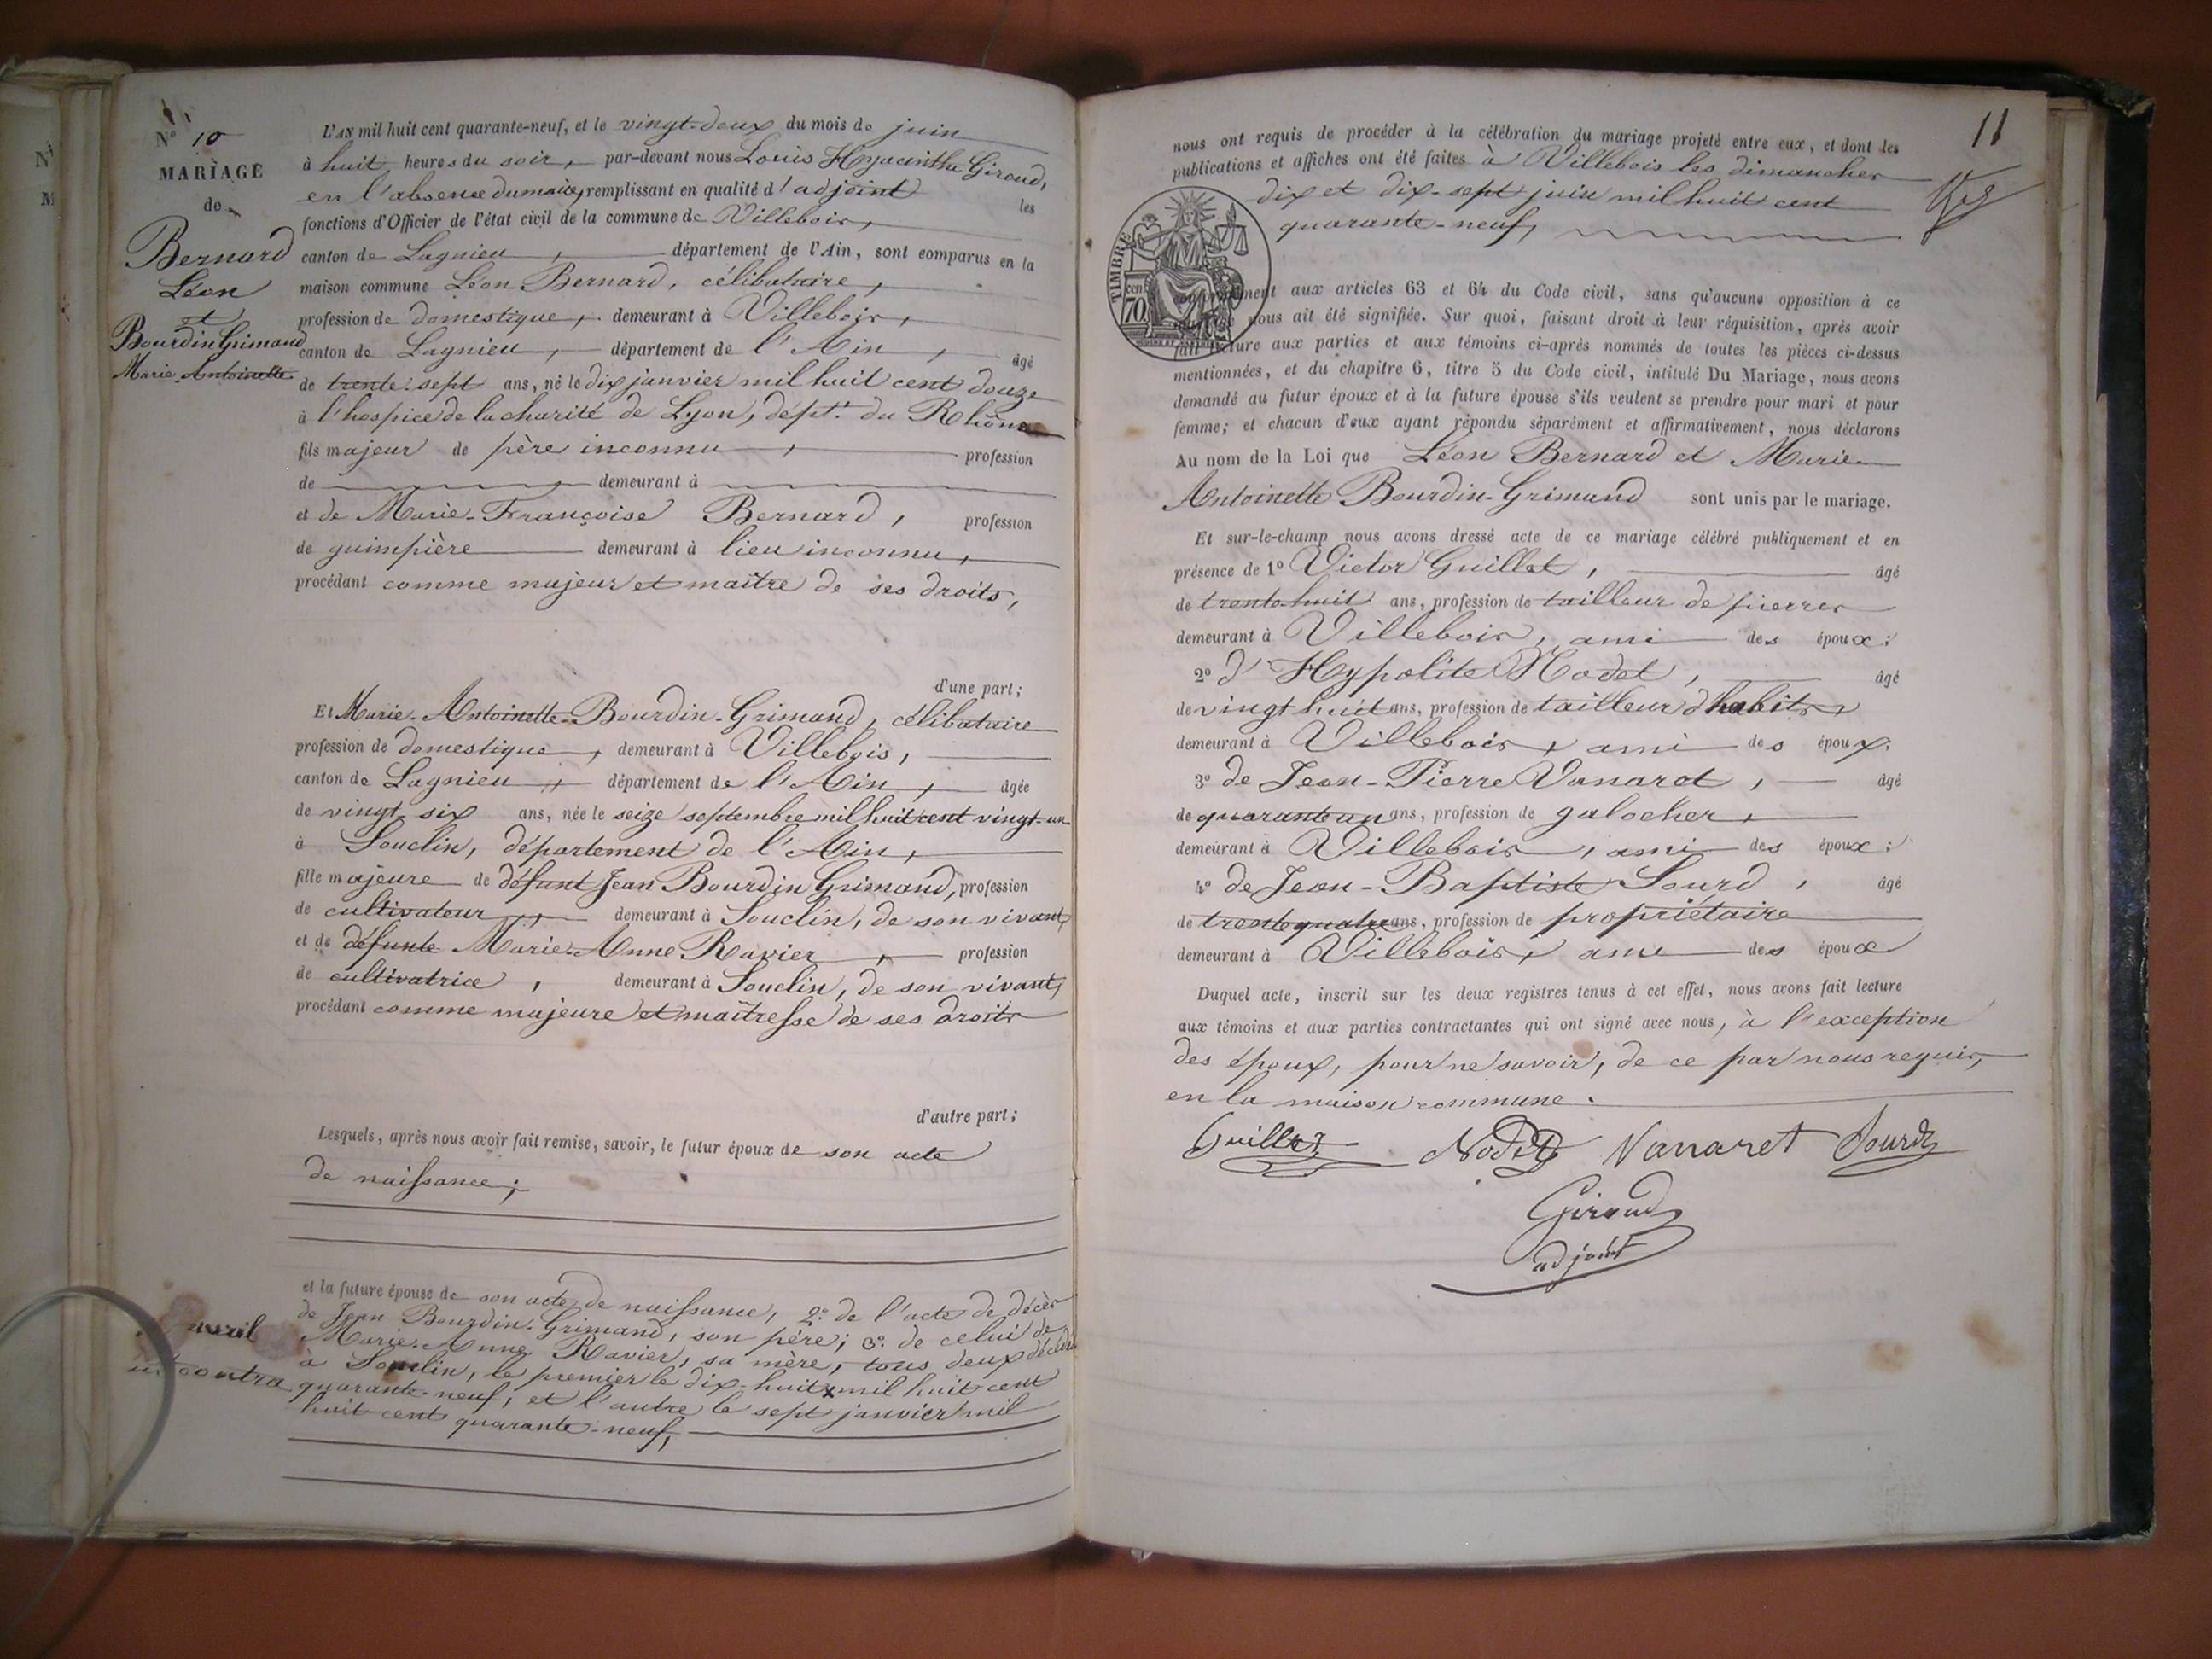 N° 10
MARIAGE
de
Bernard
Léon
et
Bourdin Grimand
Marie-Antoinette
L'AN mil huit cent quarante-neuf, et le vingt-deux du mois de juin
à huit heures du soir, par-devant nous Louis Hyacinthe Giroud,
en l'absence du maire, remplissant en qualité d'adjoint les
fonctions d'Officier de l'état civil de la commune de Villebois,
canton de Lagnieu, département de l'Ain, sont comparus en la
maison commune Léon Bernard, célibataire,
profession de domestique, demeurant à Villebois,
canton de Lagnieu, département de l'Ain, âgé
de trente-sept ans, né le dix janvier mil huit cent douze
à l'hospice de la charité de Lyon, dépt. du Rhône
fils majeur de père inconnu, profession
de demeurant à
et de Marie-Françoise Bernard, profession
de guimpière demeurant à lieu inconnu,
procédant comme majeur et maitre de ses droits,
d'une part;
Et Marie-Antoinette-Bourdin-Grimand, célibataire
profession de domestique, demeurant à Villebois,
canton de Lagnieu, département de l'Ain, âgée
de vingt-six ans, née le seize septembre mil huit cent vingt-un
à Souclin, département de l'Ain,
fille majeure de défunt Jean Bourdin Grimand, profession
de cultivateur, demeurant à Souclin, de son vivant,
et de défunte Marie-Anne Ravier, profession
de cultivatrice, demeurant à Souclin, de son vivant,
procédant comme majeure et maîtresse de ses droits
d'autre part;
Lesquels, après nous avoir fait remise, savoir, le futur époux de son acte
de naissance;
et la future épouse de son acte de naissance, 2° de l'acte de décès
de Jean Bourdin-Grimand, son père; 3° de celui de
avril Marie-Anne Ravier, sa mère, tous deux décédés
à Souclin, le premier le dix-huit x mil huit cent
contra quarante-neuf, et l'autre le sept janvier mil
huit cent quarante-neuf,
11
nous ont requis de procéder à la célébration du mariage projeté entre eux, et dont les
publications et affiches ont été faites à Villebois les dimanches
dix et dix-sept juin mil huit cent
quarante-neuf,
TIMBRE
cen
70
conformément aux articles 63 et 64 du Code civil, sans qu'aucune opposition à ce
mariage nous ait été signifiée. Sur quoi, faisant droit à leur réquisition, après avoir
fait lecture aux parties et aux témoins ci-après nommés de toutes les pièces ci-dessus
mentionnées, et du chapitre 6, titre 5 du Code civil, intitulé Du Mariage, nous avons
demandé au futur époux et à la future épouse s'ils veulent se prendre pour mari et pour
femme; et chacun d'eux ayant répondu séparément et affirmativement, nous déclarons
Au nom de la Loi que Léon Bernard et Marie
Antoinette Bourdin-Grimand sont unis par le mariage.
Et sur-le-champ nous avons dressé acte de ce mariage célébré publiquement et en
présence de 1° Victor Guillet, âgé
de trente-huit ans, profession de tailleur de pierres
demeurant à Villebois, ami des époux;
2° d'Hypolite Nodet, âgé
de vingt huit ans, profession de tailleur d'habits,
demeurant à Villebois, ami des époux;
3° de Jean-Pierre Vanaret, âgé
de quarante un ans, profession de galocher,
demeurant à Villebois, ami des époux;
4° de Jean-Baptiste Sourd, âgé
de trente quatre ans, profession de propriétaire
demeurant à Villebois, ami des époux
Duquel acte, inscrit sur les deux registres tenus à cet effet, nous avons fait lecture
aux témoins et aux parties contractantes qui ont signé avec nous, à l'exception
des époux, pour ne savoir, de ce par nous requis,
en la maison commune.
Guillet Nodet Vanaret Sourd
Giroud
adjoint